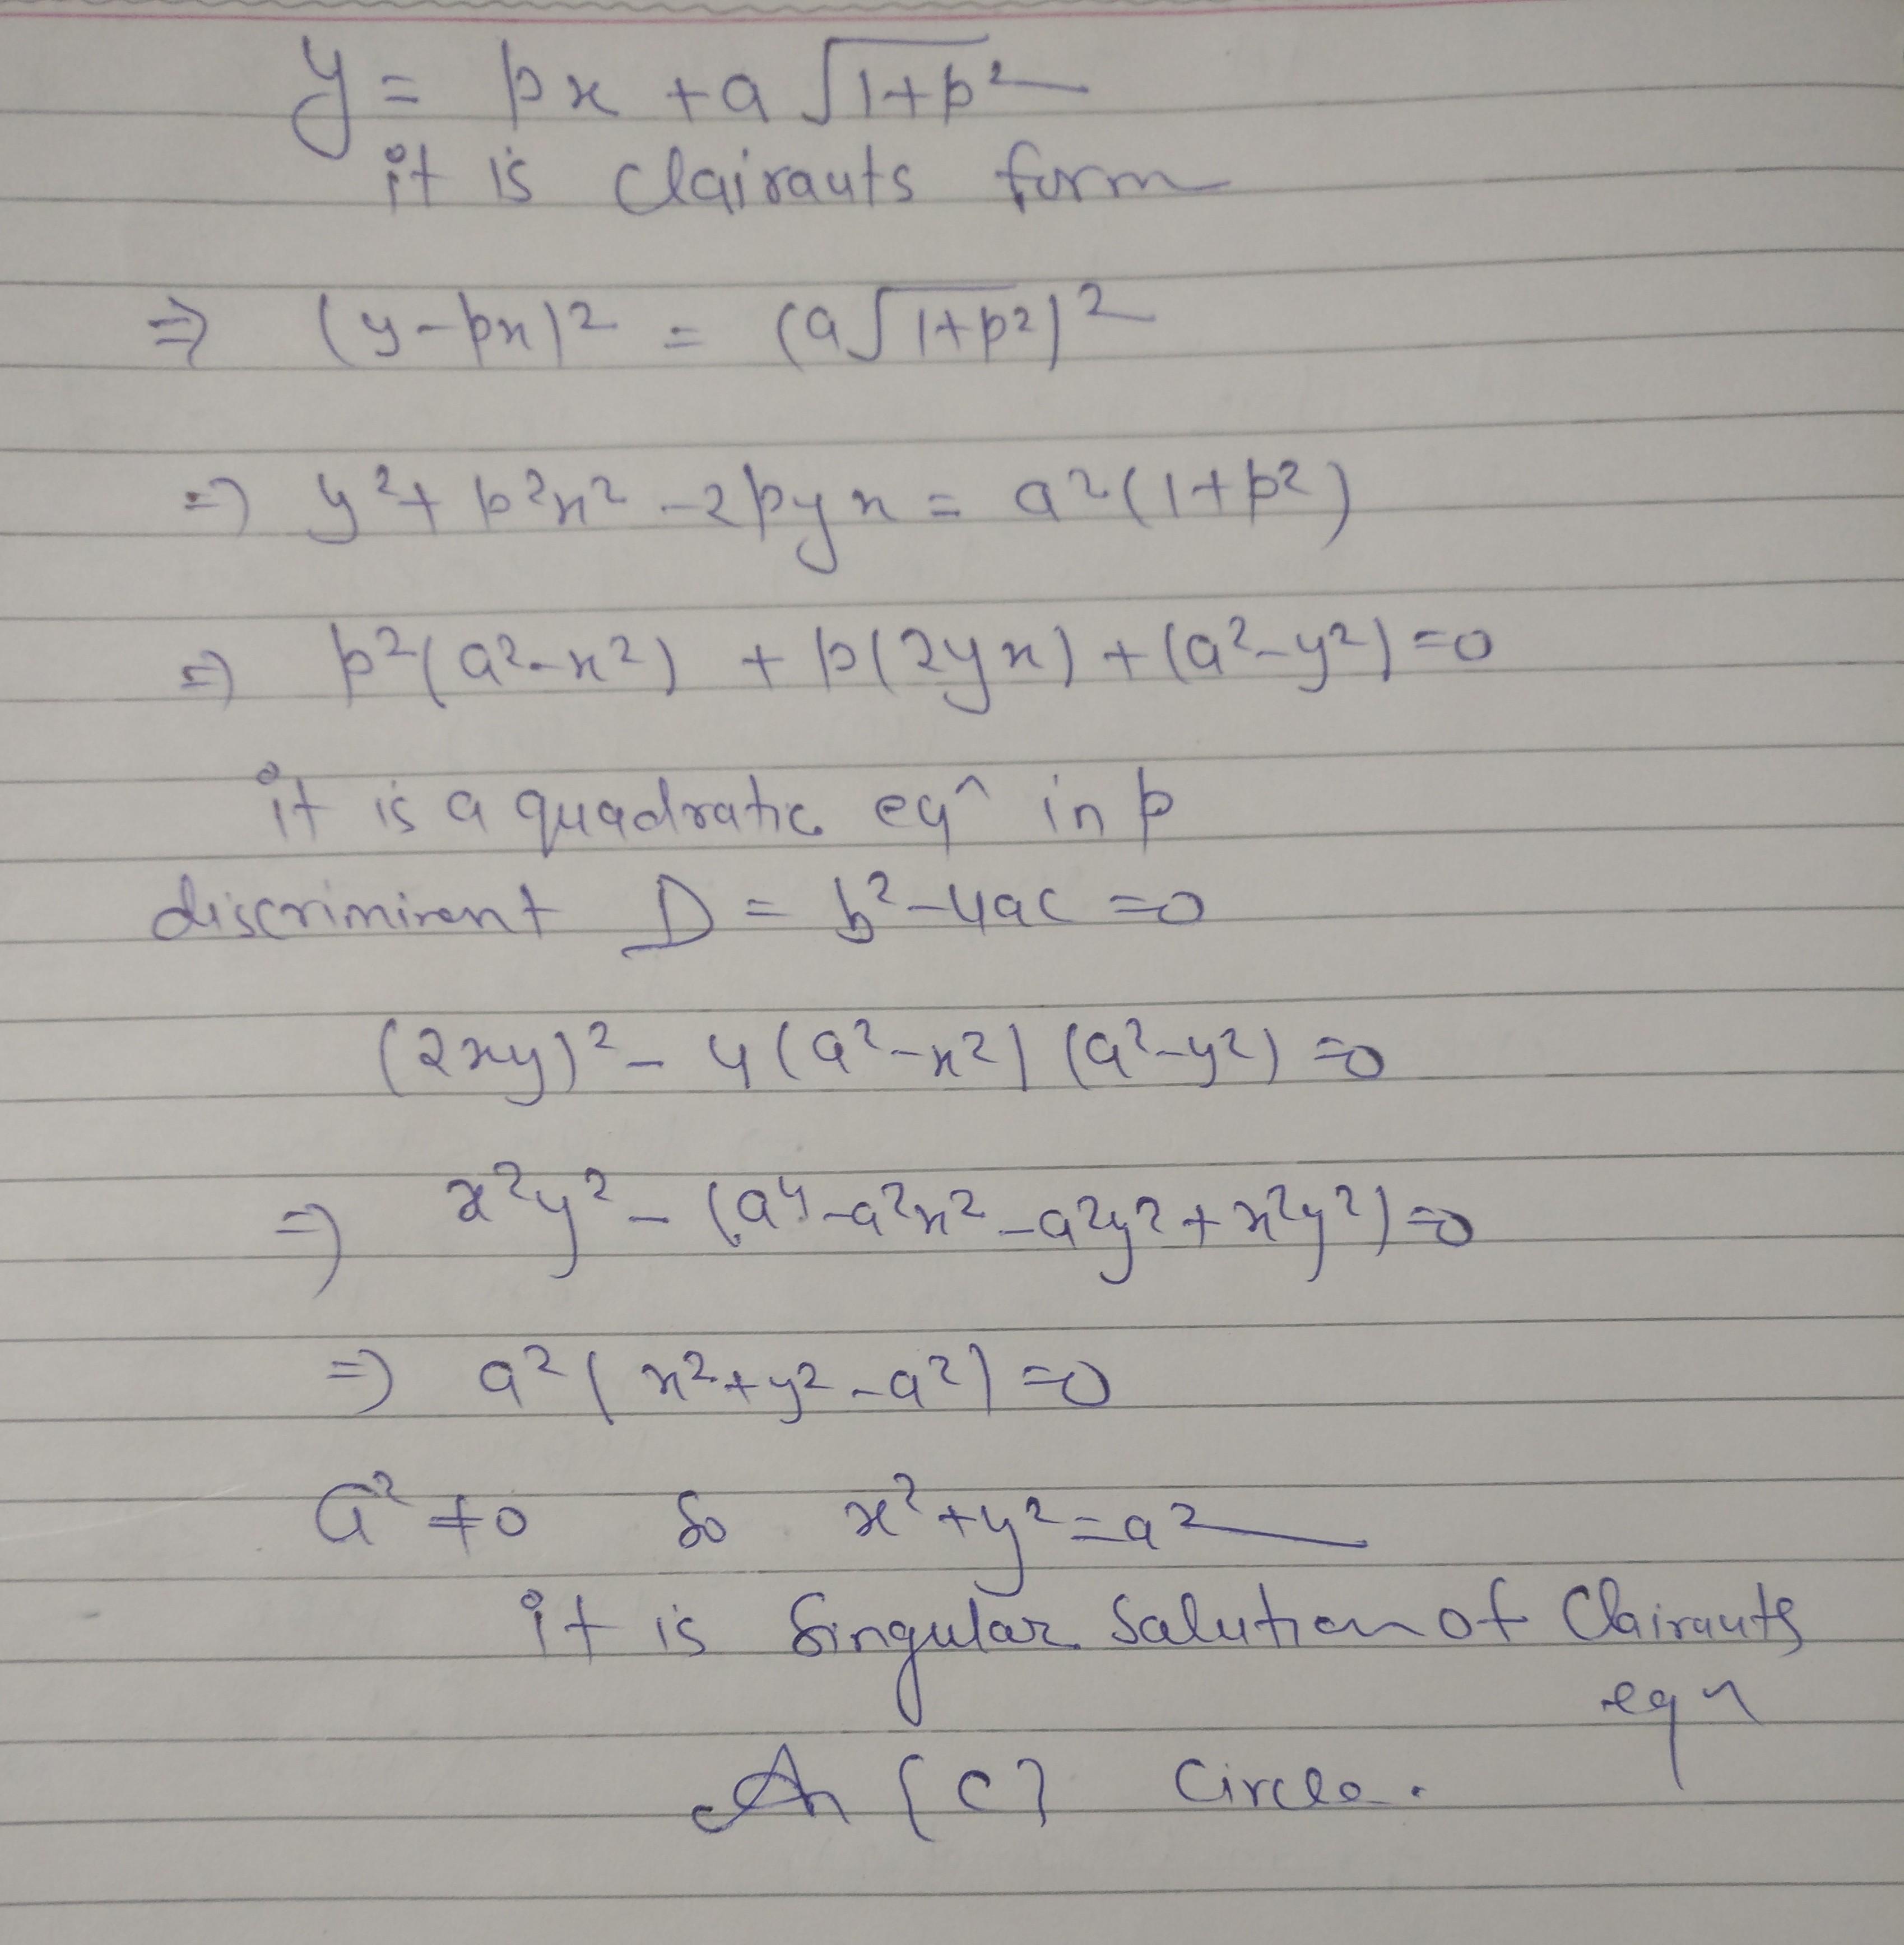 y = px + a √1+p²
it is Clairauts form
⇒ (y-px)² = (a√1+p²)²
⇒ y²+ p²x² -2pyx = a²(1+p²)
⇒ p²(a²-x²) + p(2yx) + (a²-y²) =0
it is a quadratic eq^ in p
discriminent D = b²-4ac =0
(2xy)² - 4(a²-x²) (a²-y²) =0
⇒ x²y² - (a⁴-a²x²-a²y²+x²y²) =0
⇒ a²(x²+y²-a²) =0
a² ≠0 So x²+y²=a²
it is Singular Salution of Clairauts
eqn
An {C} Circle.